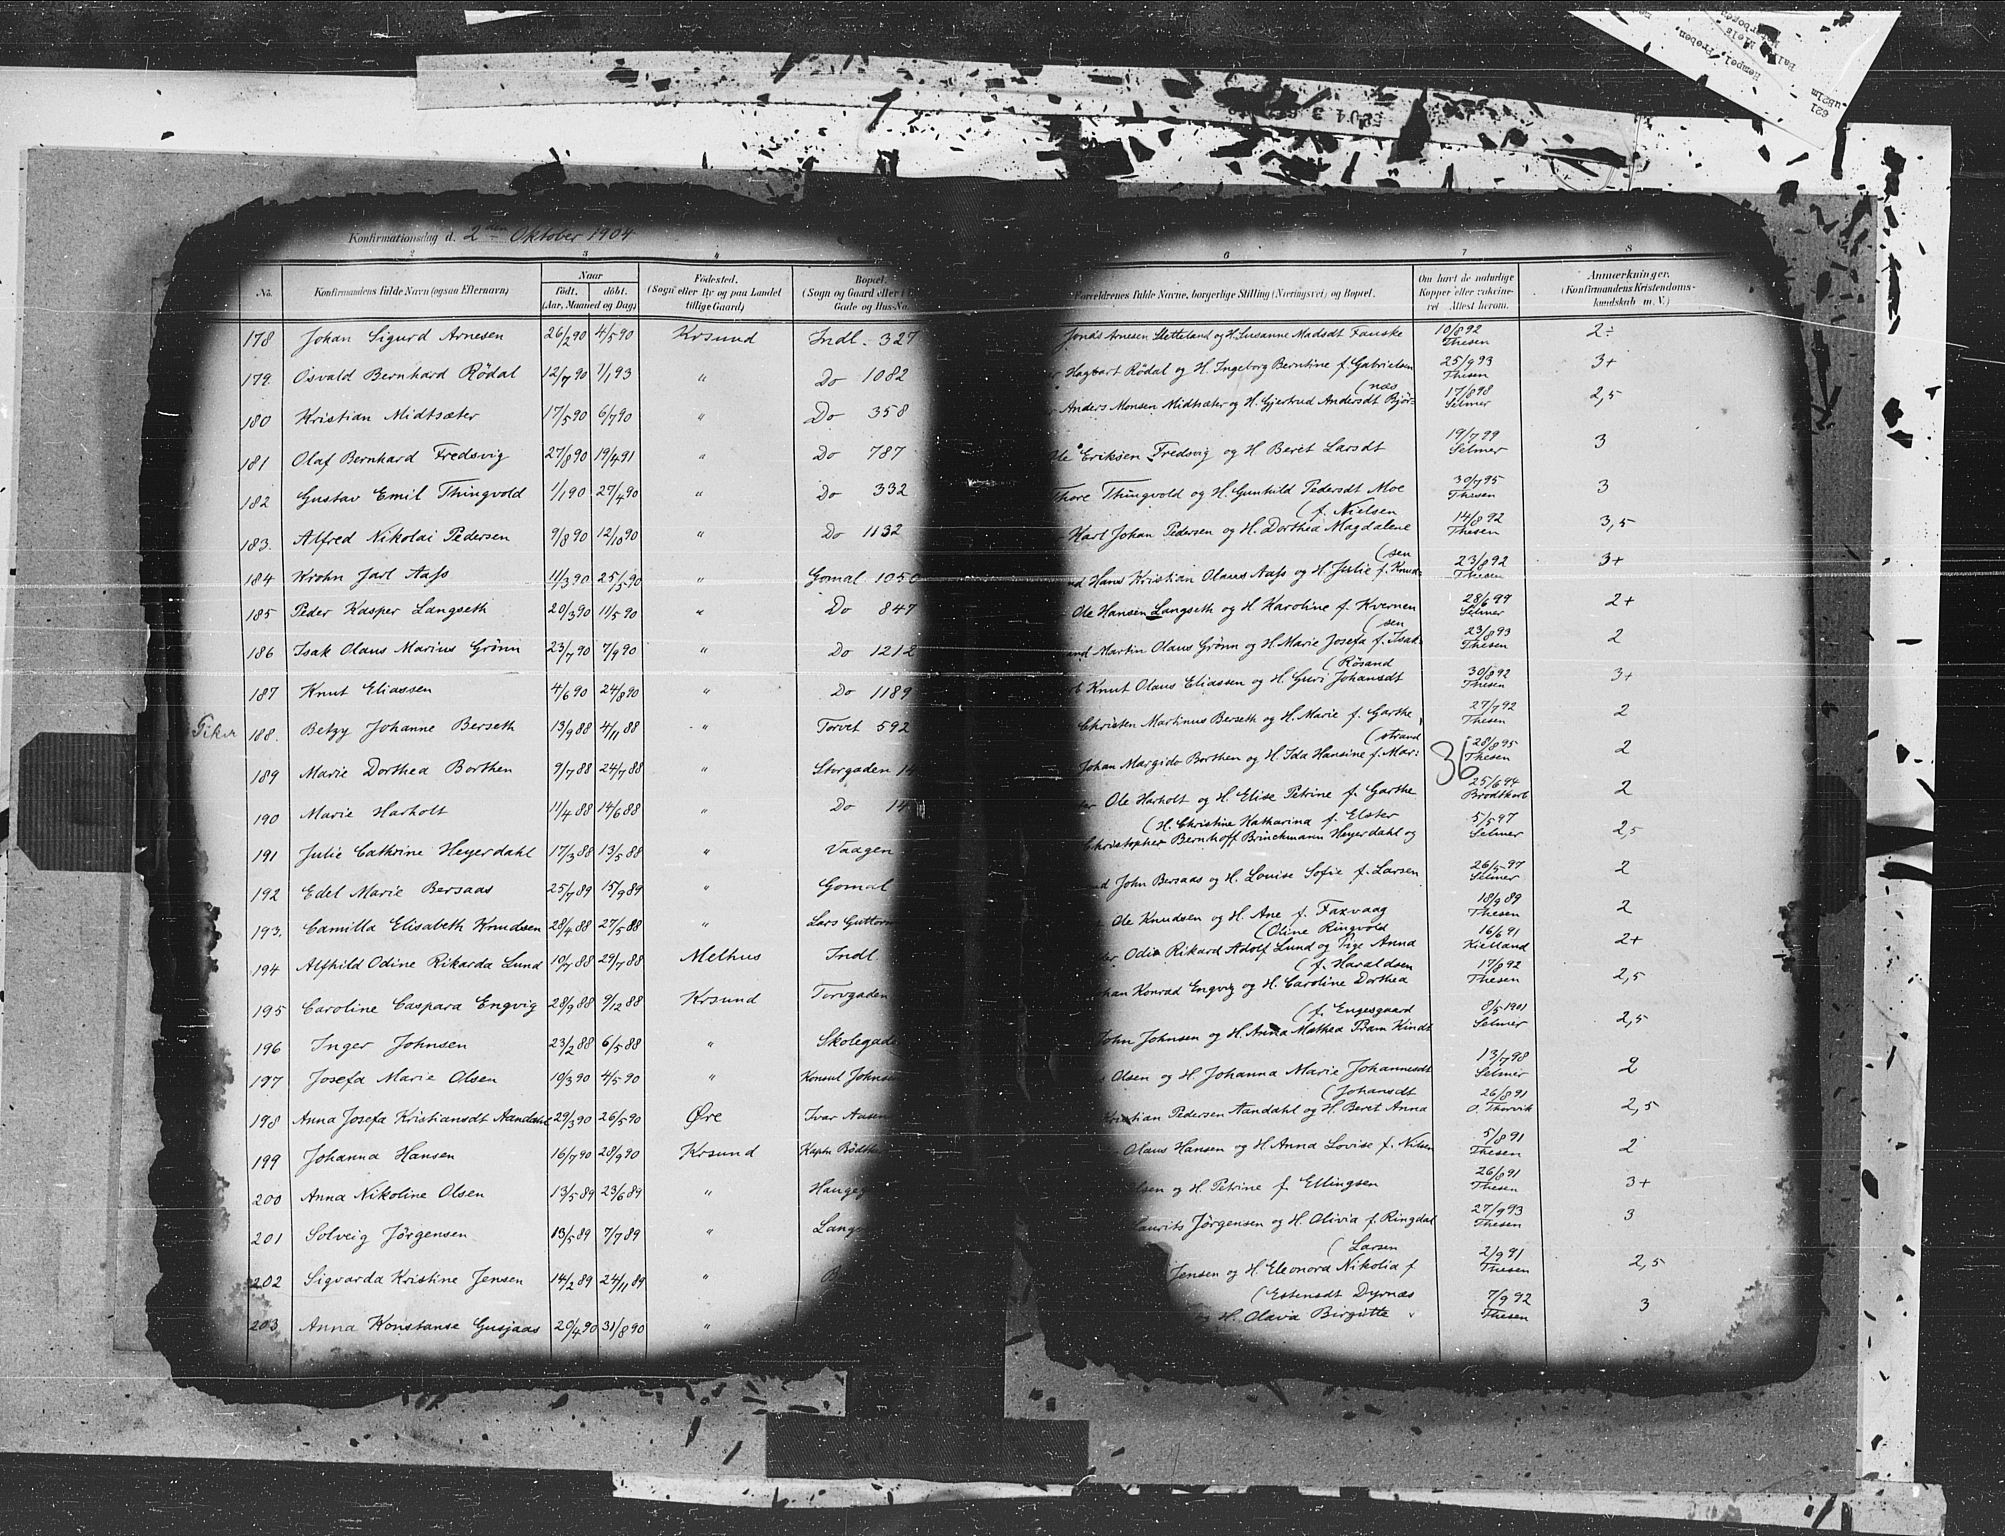 Konfirmationsdag d. 2den Oktober 1904
2 3 4 6 7 8
No. Konfirmandens fulde Navn (ogsaa Efternavn) Naar født. døbt. (Aar, Maaned og Dag) Fødested. (Sogn eller By og paa Landet tillige Gaard) Bopæl. (Sogn og Gaard eller Gade og Hus-No. Forældrenes fulde Navne, borgerlige Stilling (Næringsvei) og Bopæl. Om havt de naturlige Kopper eller vakcineret Attest herom. Anmærkninger. (Konfirmandens Kristendomskundskab m. V.)
178 Johan Sigurd Arnesen 26/2 90 4/5 90 Krsund Indl. 327 Jonas Arnesen Sletteland og H. Susanne Madsdt Fauske 10/8 92 Thesen 2÷
179. Osvald Bernhard Rödal 12/7 90 1/1 93 " Do 1082 Hagbart Rödal og H. Ingeborg Berntine f. Gabrielsen 25/9 93 Thesen 3+
180 Kristian Midtsæter 17/5 90 6/7 90 " Do 358 Anders Monsen Midtsæter og H. Gjertrud Andersdt Bjør= (næs 17/8 98 Selmer 2,5
181 Olaf Bernhard Fredsvig 27/8 90 19/4 91 " Do 787 Ole Eriksen Fredsvig og H Beret Larsdt 19/7 99 Selmer 3
182 Gustav Emil Thingvold 1/1 90 27/4 90 " Do 332 Thore Thingvold og H. Gunhild Pedersdt Moe 30/7 95 Thesen 3
183. Alfred Nikolai Pedersen 9/8 90 12/10 90 " Do 1132 Karl Johan Pedersen og H. Dorthea Magdalene (f. Nielsen 14/8 92 Thesen 3,5
184 Krohn Jarl Aass 11/3 90 25/5 90 " Gomal 1050 Hans Kristian Olaus Aass og H. Julie f. Knud= (sen 23/8 92 Thesen 3+
185 Peder Kasper Langseth 20/3 90 11/5 90 " Do 847 Ole Hansen Langseth og H Karoline f. Kvernen 28/6 99 Selmer 2+
186 Isak Olaus Marius Grönn 23/7 90 7/9 90 " Do 1212 Martin Olaus Grönn og H. Marie Josefa f. Isak= (sen 23/8 93 Thesen 2
187 Knut Eliassen 4/6 90 24/8 90 " Do 1189 Knut Olaus Eliassen og H. Guri Johansdt (Rösand 30/8 92 Thesen 3+
188. Betzy Johanne Berseth 13/9 88 4/11 88 " Torvet 592 Christen Martinus Berseth og H. Marie f. Garthe 27/7 92 Thesen 2
189 Marie Dorthea Borthen 9/7 88 24/7 88 " Storgaden 14 Johan Margido Borthen og H. Ida Hansine f. Mar= (strand 36 28/8 95 Thesen 2
190 Marie Harholt 11/4 88 14/6 88 " Do 14 Ole Harholt og H. Elise Petrine f. Garthe 25/6 94 Brodtkorb 2
191 Julie Cathrine Heyerdahl 17/3 88 13/5 88 " Vaagen Christopher Bernhoff Brinchmann Heyerdahl og (H. Christine Katharina f. Elster 5/5 97 Selmer 2,5
192 Edel Marie Bersaas 25/7 89 15/9 89 " Gomal John Bersaas og H. Louise Sofie f. Larsen 26/5 97 Selmer 2
193. Camilla Elisabeth Knudsen 28/4 88 27/5 88 " Lars Guttorm Ole Knudsen og H. Ane f. Faxvaag 18/9 89 Thesen 2
194 Alfhild Odine Rikarda Lund 10/7 88 29/7 88 Melhus Indl Odin Rikard Adolf Lund og Pige Anna (Oline Ringvold 16/6 91 Kielland 2+
195 Caroline Caspara Engvig 28/9 88 9/12 88 Krsund Torvgaden Johan Konrad Engvig og H. Caroline Dorthea (f. Haraldsen 17/8 92 Thesen 2,5
196 Inger Johnsen 23/2 88 6/5 88 " Skolegade John Johnsen og H. Anna Mathea Pram Kindt (f. Engesgaard 8/5 1901 Selmer 2,5
197 Josefa Marie Olsen 10/3 90 4/5 90 " Konsul Johnsen Olsen og H Johanna Marie Johannesdt 13/7 98 Selmer 2
198 Anna Josefa Kristiansdt Aandahl 29/3 90 26/5 90 Øre Ivar Aasen Kristian Pedersen Aandahl og H. Beret Anna (Johansdt 26/8 91 O. Thorvik 2,5
199 Johanna Hansen 16/7 90 28/9 90 Krsund Kaptn Bödtker Olaus Hansen og H Anna Lovise f. Nilsen 5/8 91 Thesen 2
200 Anna Nikoline Olsen 13/5 89 23/6 89 " Hauge Olsen og H. Petrine f. Ellingsen 26/8 91 Thesen 3+
201 Solveig Jörgensen 13/5 89 7/7 89 " Lang Laurits Jörgensen og H. Olivia f. Ringdal 27/9 93 Thesen 3
202 Sigvarda Kristine Jensen 14/2 89 24/11 89 " Jensen og H. Eleonora Nikolia f (Larsen 2/9 91 Thesen 2,5
203 Anna Konstanse Gusjaas 20/4 90 31/8 90 " og H. Olava Birgitte (Estensdt Dyrnæs 7/9 92 Thesen 3